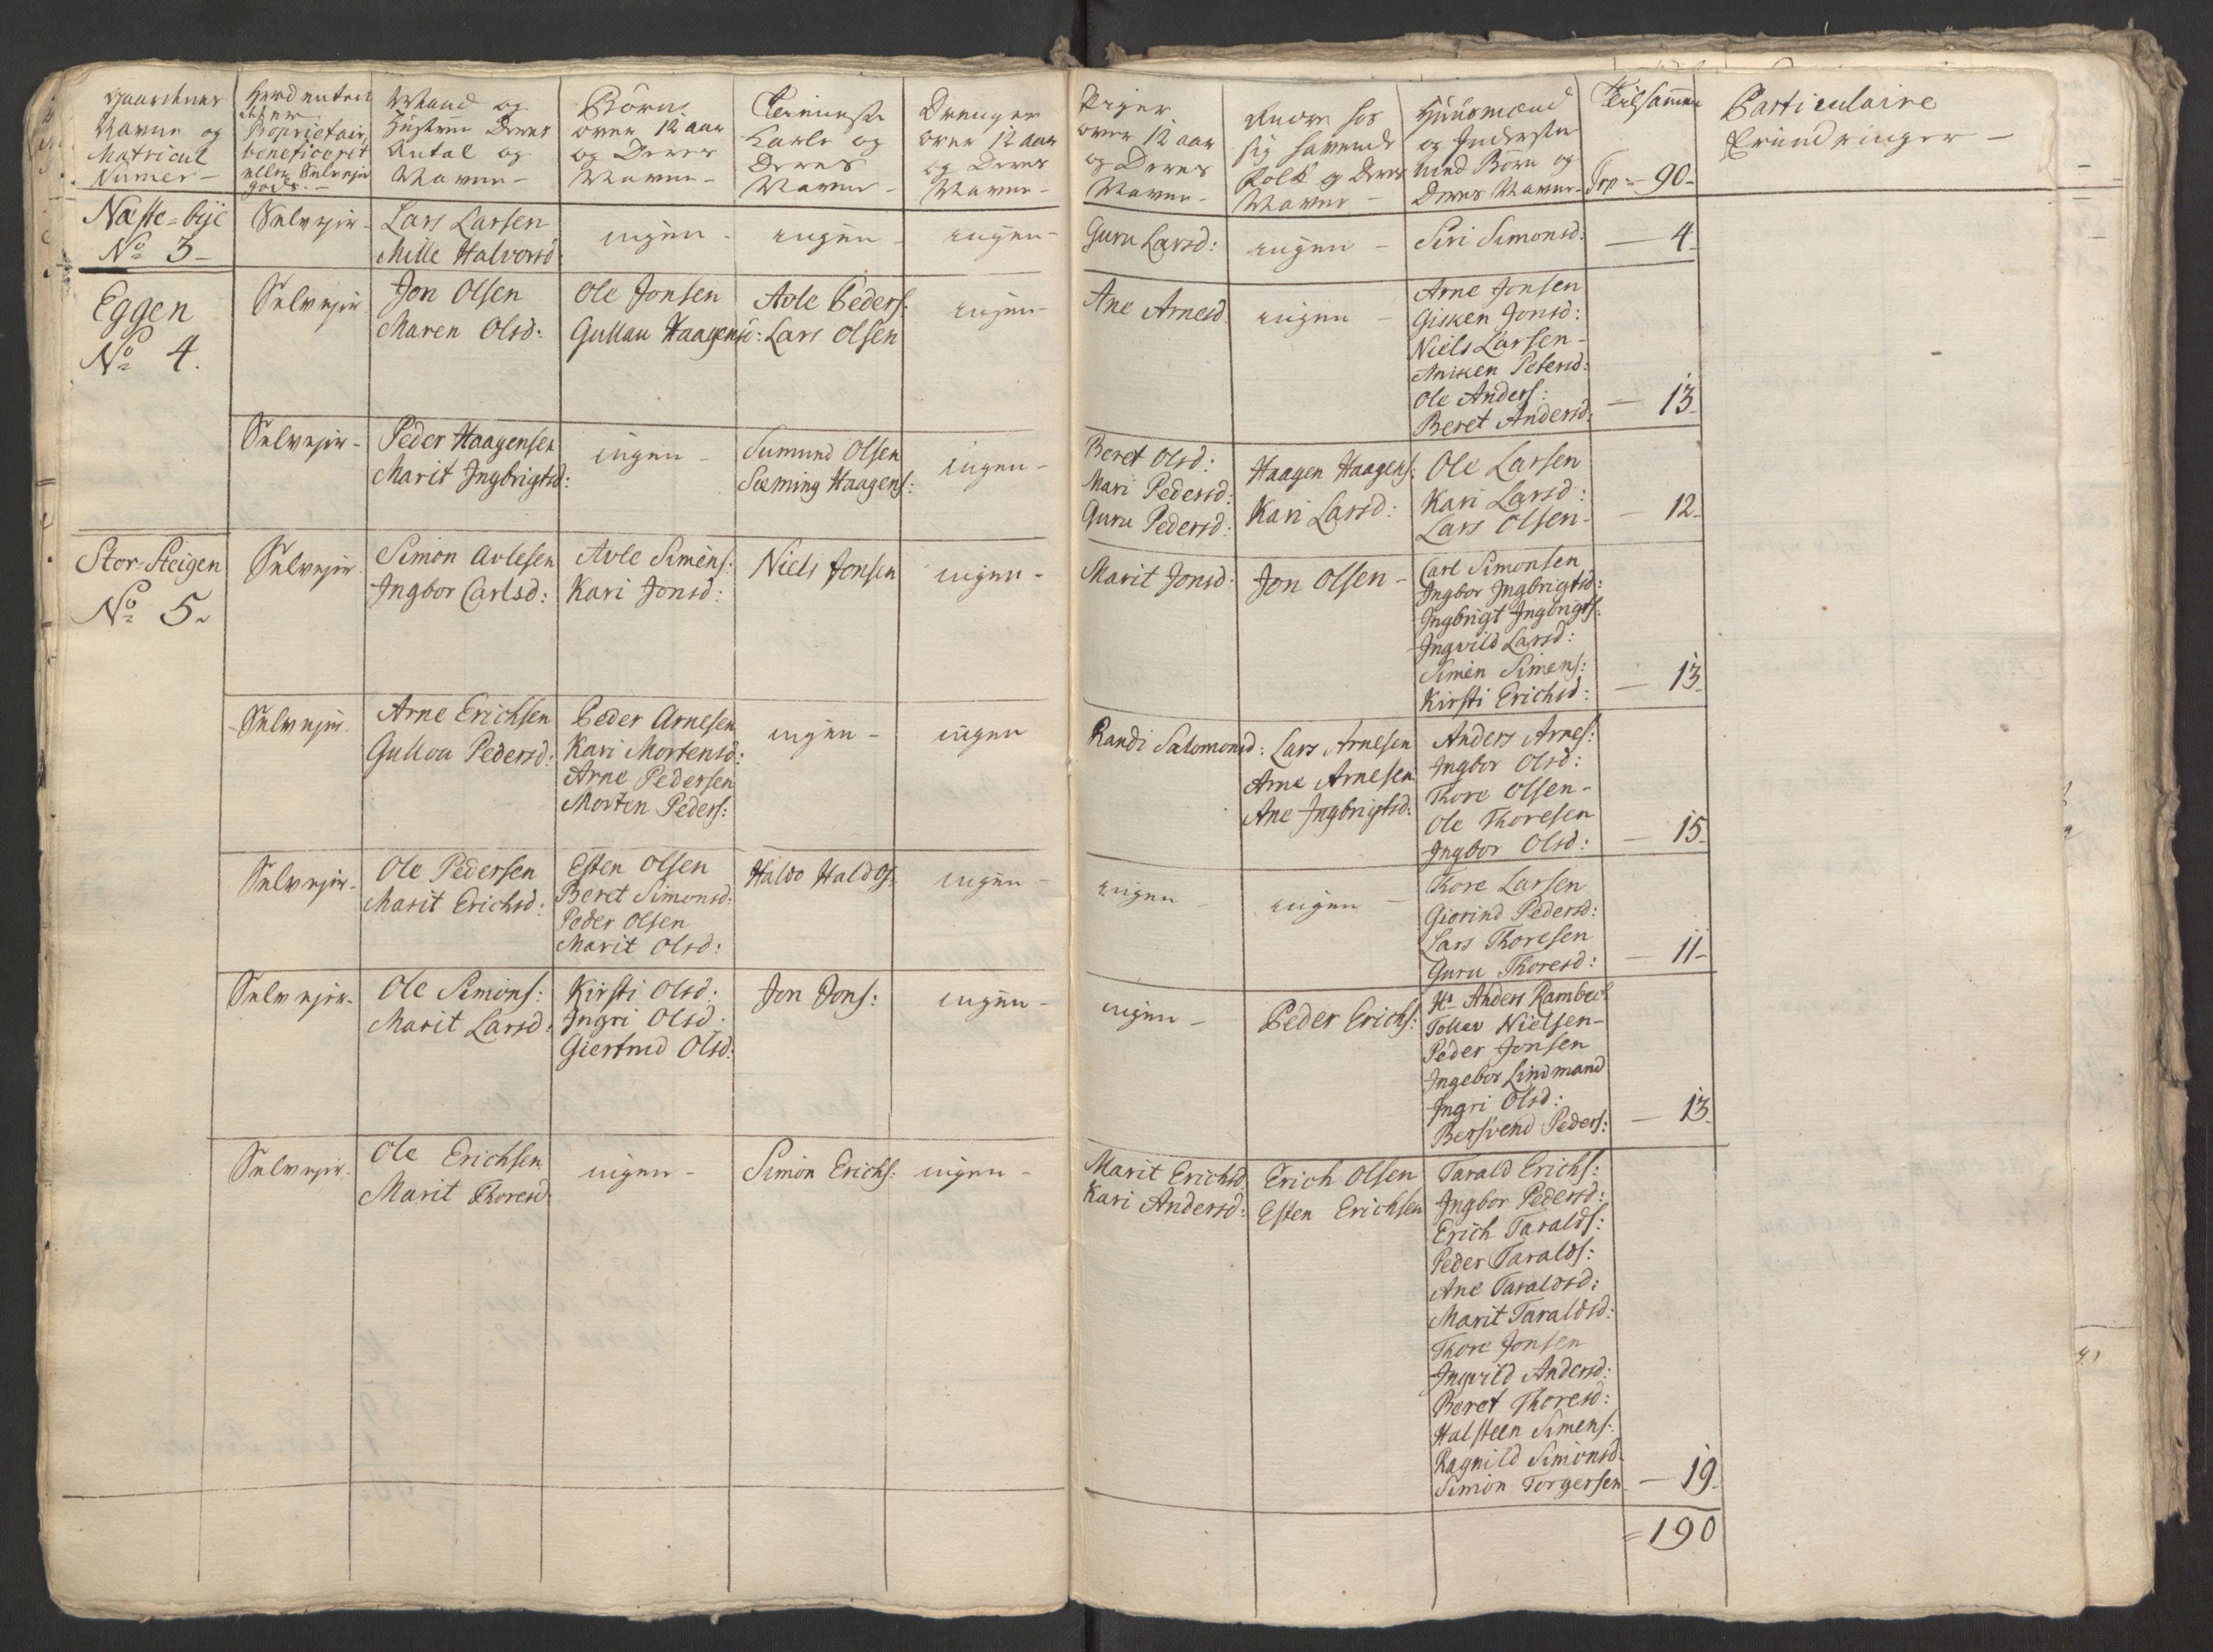 Gaardenes
Navne og
Matricul
Numer -
Hvad enten
det er
Proprietair,
beneficeret
eller Selveyer
gods. -
Mand og
Hustrue Deres
Antal og
Navne -
Børn
over 12 aar
og Deres
Navne -
Tieneste
Karle og
Deres
Navne -
Drenger
over 12 aar
og Deres
Navne -
Piger
over 12 aar
og Deres
Navne -
Andre hos
sig havende
Folk og Deres
Navne -
Huusmænd
og Inderster
med Børn og
Deres Navne -
Tilsammen
Trp: - 90 -
Particulaire
Erindringer -
Næste-bye
No 3 -
Selveyer -
Lars Larsen
Mille Halvorsd:
ingen -
ingen -
ingen -
Guru Larsd:
ingen -
Siri Simonsd:
- 4 -
Eggen
No 4.
Selveyer
Jon Olsen
Maren Olsd:
Ole Jonsen
Gullau Haagensd:
Avle Peders:
Lars Olsen
ingen -
Ane Arnesd:
ingen -
Arne Jonsen
Gisken Jonsd:
Niels Larsen -
Aniken Petersd:
Ole Anders:
Beret Andersd:
- 13 -
Selveyer -
Peder Haagensen
Marit Ingbrigtsd:
ingen -
Sumund Olsen
Sæming Haagens:
ingen -
Beret Olsd:
Mari Pedersd:
Guru Pedersd:
Haagen Haagens:
Kari Larsd:
Ole Larsen
Kari Larsd:
Lars Olsen -
- 12 -
Stor-Steigen
No 5.
Selveyer
Simon Avlesen
Ingbor Carlsd:
Avle Simens:
Kari Jonsd:
Niels Jonsen
ingen -
Marit Jonsd:
Jon Olsen -
Carl Simonsen
Ingbor Ingbrigtsd:
Ingbrigt Ingbrigts:
Ingvild Larsd:
Simen Simens:
Kirsti Erichsd:
- 13 -
Selveyer
Arne Erichsen
Gullou Pedersd:
Peder Arnesen
Kari Mortensd:
Arne Pedersen
Morten Peders:
ingen -
ingen
Randi Salomonsd:
Lars Arnesen
Arne Arnesen
Ane Ingbrigtsd:
Anders Arnes:
Ingbor Olsd:
Thore Olsen -
Ole Thoresen
Ingbor Olsd:
- 15 -
Selveyer -
Ole Pedersen
Marit Erichsd:
Esten Olsen
Beret Simonsd:
Peder Olsen
Marit Olsd:
Haldo Haldos:
ingen -
ingen -
ingen -
Thore Larsen
Giorind Pedersd:
Lars Thoresen
Guru Thoresd:
- 11 -
Selveyer -
Ole Simons:
Marit Larsd:
Kirsti Olsd:
Ingri Olsd:
Giertrud Olsd:
Jon Jons:
ingen -
ingen -
Peder Erichs:
Hr Anders Rambech
Tollev Nielsen -
Peder Jonsen
Ingebor Lindmand
Ingri Olsd:
Bersvend Peders:
- 13 -
Selveyer -
Ole Erichsen
Marit Thoresd:
ingen -
Simon Erichs:
ingen -
Marit Erichsd:
Kari Andersd:
Erich Olsen
Esten Erichsen
Tarald Erichs:
Ingbor Pedersd:
Erich Taralds:
Peder Taralds:
Ane Taraldsd:
Marit Taraldsd:
Thore Jonsen
Ingvild Andersd:
Beret Thoresd:
Halsteen Simens:
Ragnild Simonsd:
Simon Torgersen
- 19 -
= 190